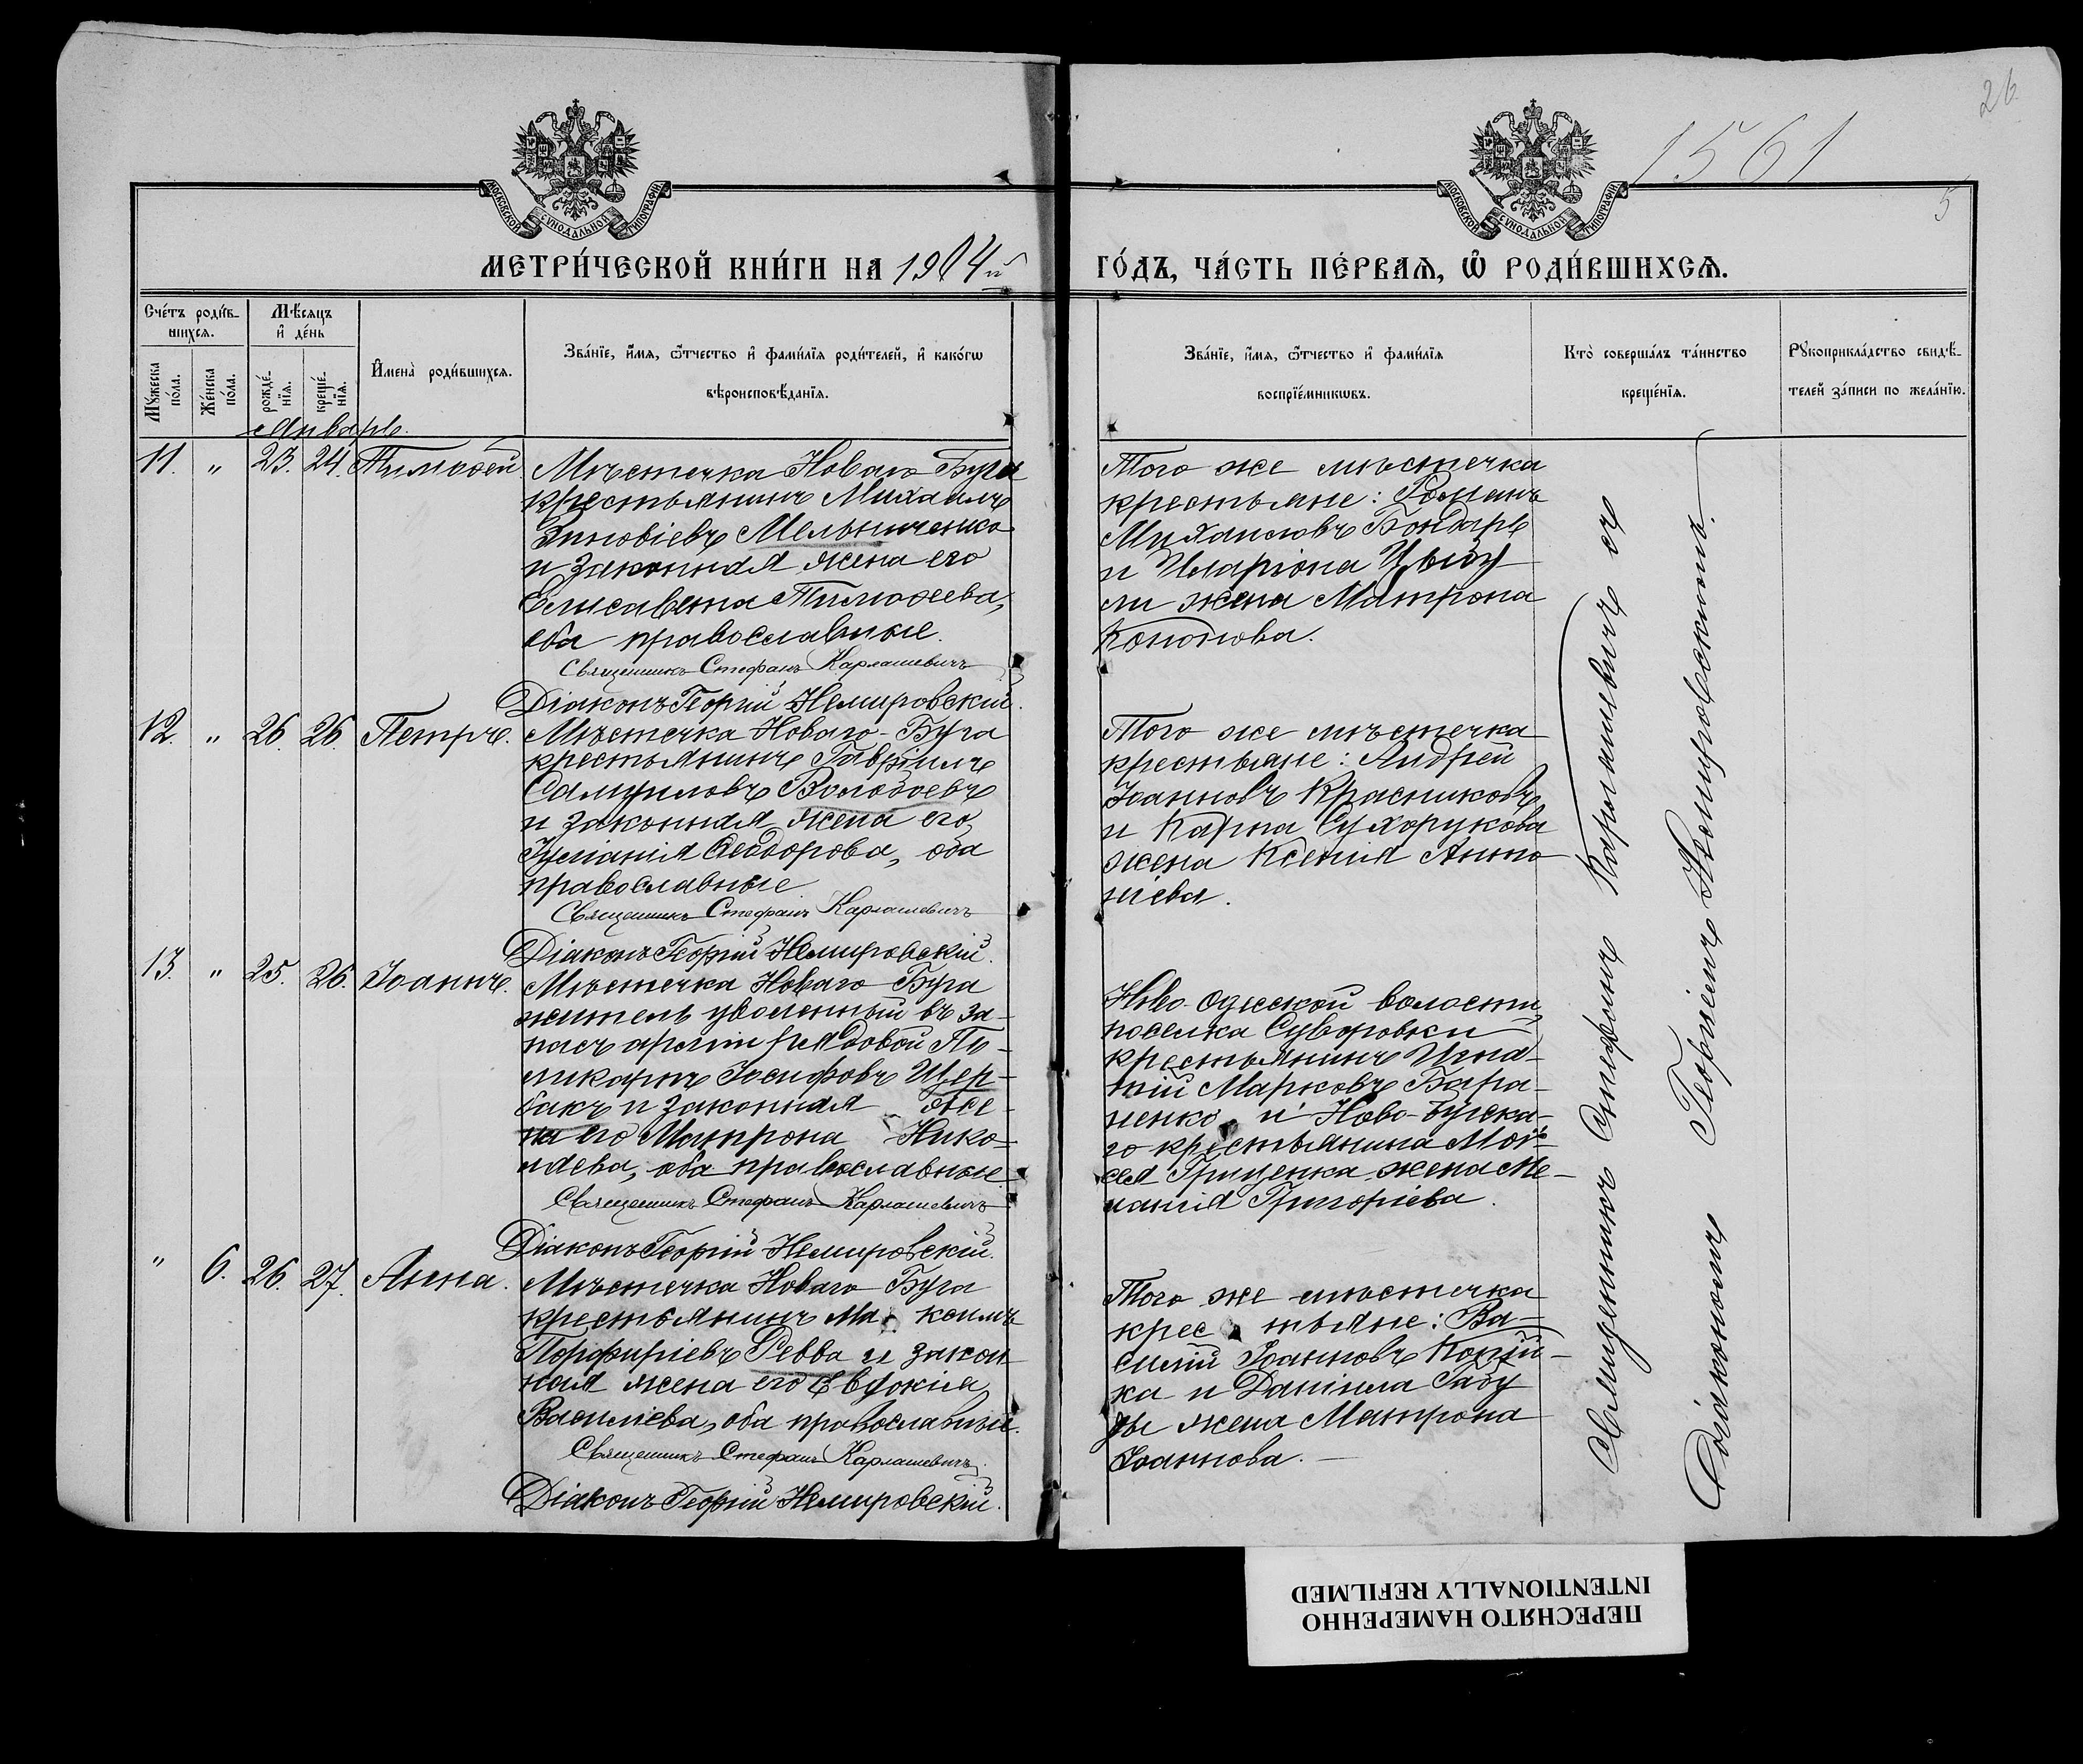 26
1561
5
МОСКОВСКОЙ СѴНОДАЛЬНОЙ ТИПОГРАФІИ
МОСКОВСКОЙ СѴНОДАЛЬНОЙ ТИПОГРАФІИ
МЕТРИ́ЧЕСКОЙ КНИ́ГИ НА 1904й
ГО́ДЪ, ЧА́СТЬ ПЕ́РВАѦ, Ѡ҆ РОДИ́ВШИХСѦ.
Сче́тъ роди́в-
шихсѧ.
Мѣ́сѧцъ
и҆ де́нь
Мꙋ́жеска
по́ла.
Же́нска
по́ла.
рожде́-
нїѧ.
креще́-
нїѧ.
И҆мена̀ роди́вшихсѧ.
Зва́нїе, и҆́мѧ, ѻ҆́тчество и҆ фами́лїѧ роди́телей, и҆ како́гѡ
вѣроисповѣ́данїѧ.
Зва́нїе, и҆́мѧ, ѻ҆́тчество и҆ фами́лїѧ
воспрїе́мникѡвъ.
Кто̀ соверша́лъ та́инство
креще́нїѧ.
Рꙋкоприкла́дство свидѣ́-
телей за́писи по жела́нїю.
Январь.
11. " 23. 24. Тимоѳей.
Мѣстечка Новаго Буга
крестьянинъ Михаилъ
Зиновіевъ Мельниченко
и законная жена его
Елисавета Тимоѳеева,
оба православные.
Священникъ Стефанъ Карлашевичъ
Діаконъ Георгій Немировскій.
Того же мѣстечка
крестьяне: Романъ
Михаиловъ Бондарь
и Иларіона Цыбу
ли жена Матрона
Кононова.
12. " 26. 26. Петръ.
Мѣстечка Новаго-Буга
крестьянинъ Гавріилъ
Самуиловъ Володоевъ
и законная жена его
Іуліанія Ѳеодорова, оба
православные
Священникъ Стефанъ Карлашевичъ
Діаконъ Георгій Немировскій.
Того же мѣстечка
крестьяне: Андрей
Іоанновъ Красниковъ
и Карпа Сухорукова
жена Ксенія Анто
ніева.
13. " 25. 26. Іоаннъ.
Мѣстечка Новаго Буга
житель уволенный въ за-
пасъ арміи рядовой По-
ликарпъ Іосифовъ Щер-
бакъ и законная же-
на его Матрона Нико-
лаева, оба православные.
Священникъ Стефанъ Карлашевичъ
Діаконъ Георгій Немировскій.
Ново-Одесской волости,
поселка Суворовки
крестьянинъ Игна-
тій Марковъ Бара-
ненко и Ново-Бугска-
го крестьянина Мой-
сея Гриценка жена Ме-
ланія Григоріева.
" 6. 26. 27. Анна.
Мѣстечка Новаго Буга
крестьянинъ Ма ксимъ
Порфиріевъ Ревва и закон
ная жена его Евдокія
Василіева, оба православные.
Священникъ Стефанъ Карлашевичъ.
Діаконъ Георгій Немировскій.
Того же мѣстечка
крес тьяне: Ва-
силій Іоанновъ Копій-
ка и Даніила Габу
ры жена Матрона
Іоаннова.
Священникъ Стефанъ Карлашевичъ съ
Діакономъ Георгіемъ Немировскимъ.
ПЕРЕСНЯТО НАМЕРЕННО
INTENTIONALLY REFILMED